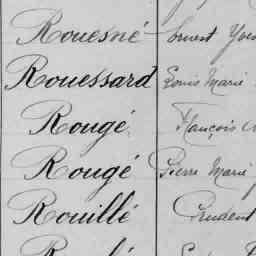 Rouesné Ernest Yves
Rouessard Louis Marie
Rougé François
Rougé Pierre Marie
Rouillé Prudent